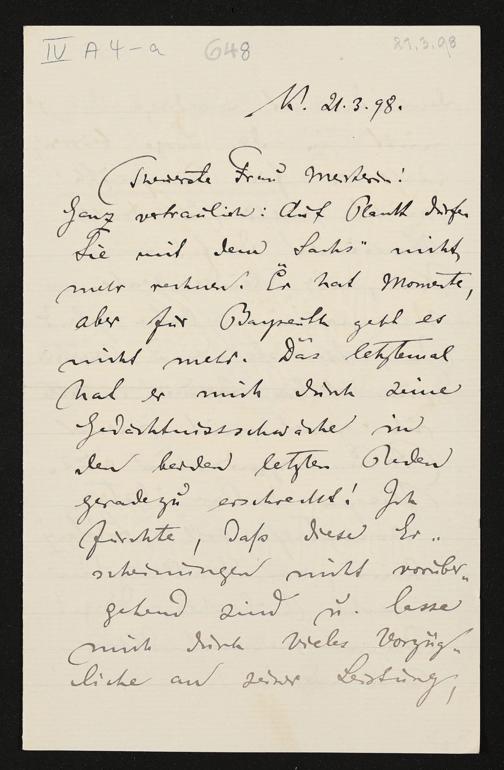 IV A 4-a 648 21.3.98
K. 21.3.98.
Theuerste Frau Meisterin!
Ganz vertraulich: Auf Plank dürfen
Sie mit dem „Sachs" nicht
mehr rechnen. Er hat Momente,
aber für Bayreuth geht es
nicht mehr. Das letztemal
hat er mich durch seine
Gedächtnissschwäche in
den beiden letzten Reden
geradezu erschreckt! Ich
fürchte, daß diese Er-
scheinungen nicht vorüber-
gehend sind u. lasse
mich durch vieles Vorzüg-
liche an seiner Leistung,